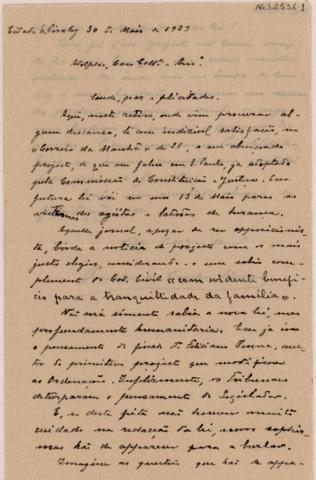 No 32536 1
Cidade de Piraby 30 de Maio de 1929
Adolpho, Caro Coll. e Am.º
Saude, paz e felicidades.
Aqui, neste retiro, onde vim procurar al-
gum descanso, li com indizivel satisfação, no
«Correio da Manhã» de 28, o seu almejado
projecto, de que me falou em S. Paulo, já adoptado
pela Commissão de Constituição e Justiça. Essa
futura lei vai ser um 13 de Maio para as
victimas dos agiotas e ladrões de herança.
Aquelle jornal, apezar de ser opposicionis-
ta, borda a noticia do projecto com os mais
justos elogios, considerando-o um sabio com-
plemento do Cod. Civil «com evidente benefi-
cio para a tranquilidade da familia».
Não será sómente sabia a nova lei, mas
profundamente humanitaria. Esse já era
o pensamento do finado Dr. Feliciano Penna, au-
tor do primitivo projecto que modificou
as Ordenações. Infelizmente, os Tribunaes
deturparam o pensamento do Legislador.
E, se desta feita não houver muito
cuidado na redacção da lei, novos sophis-
mas hão de apparecer para a burlar.
Imagine as questões que hão de appa-